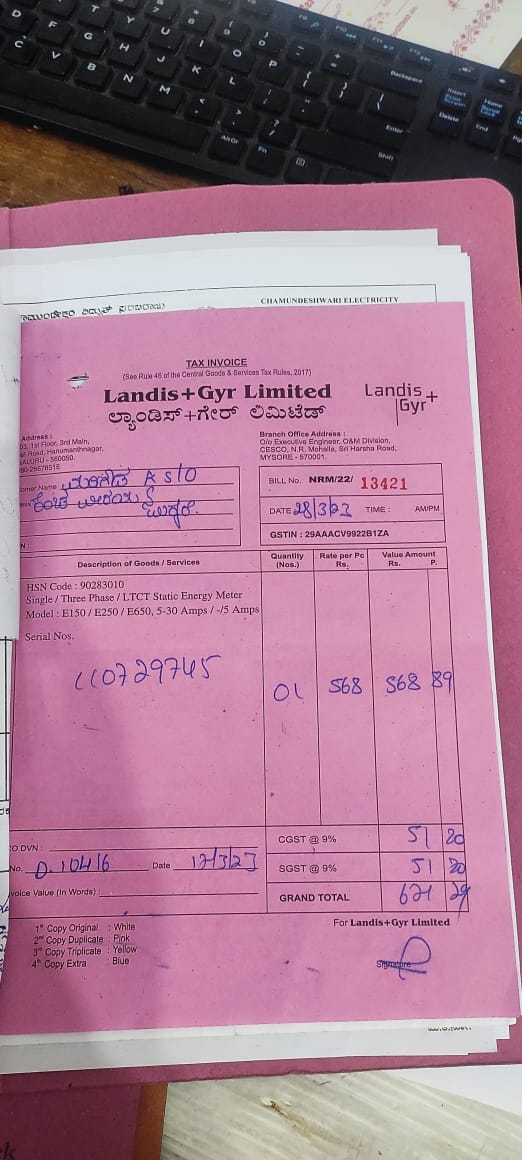 CHAMUNDESHWARI ELECTRICITY
TAX INVOICE
(See Rule 46 of the Central Goods & Services Tax Rules, 2017)
Landis+Gyr Limited
ಲ್ಯಾಂಡಿಸ್+ಗೇರ್ ಲಿಮಿಟೆಡ್
Landis+
Gyr
Address :
1st Floor, 3rd Main,
Road, Hanumanthnagar,
- 560050.
26678515
Branch Office Address :
O/o Executive Engineer, O&M Division,
CESCO, N.R. Mohalla, Sri Harsha Road,
MYSORE - 570001.
omer Name
BILL No. NRM/22/ 13421
DATE 28/3/23 TIME : AM/PM
GSTIN : 29AAACV9922B1ZA
Description of Goods / Services
Quantity (Nos.)
Rate per Pc Rs.
Value Amount Rs. P.
HSN Code : 90283010
Single / Three Phase / LTCT Static Energy Meter
Model : E150 / E250 / E650, 5-30 Amps / -/5 Amps
Serial Nos.
110729745 01 568 568 89
O DVN :
CGST @ 9% 51 20
No. D.10416 Date 17/3/23
SGST @ 9% 51 20
voice Value (In Words) :
GRAND TOTAL 671 29
1st Copy Original : White
2nd Copy Duplicate : Pink
3rd Copy Triplicate : Yellow
4th Copy Extra : Blue
For Landis+Gyr Limited
Signature